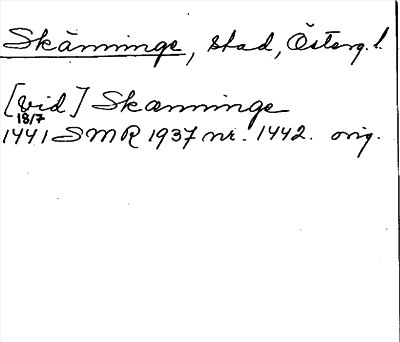 Skänninge, stad, Österg. l.
[vid] Skænninge
18/7
1441 SMR 1937 nr. 1442. orig.